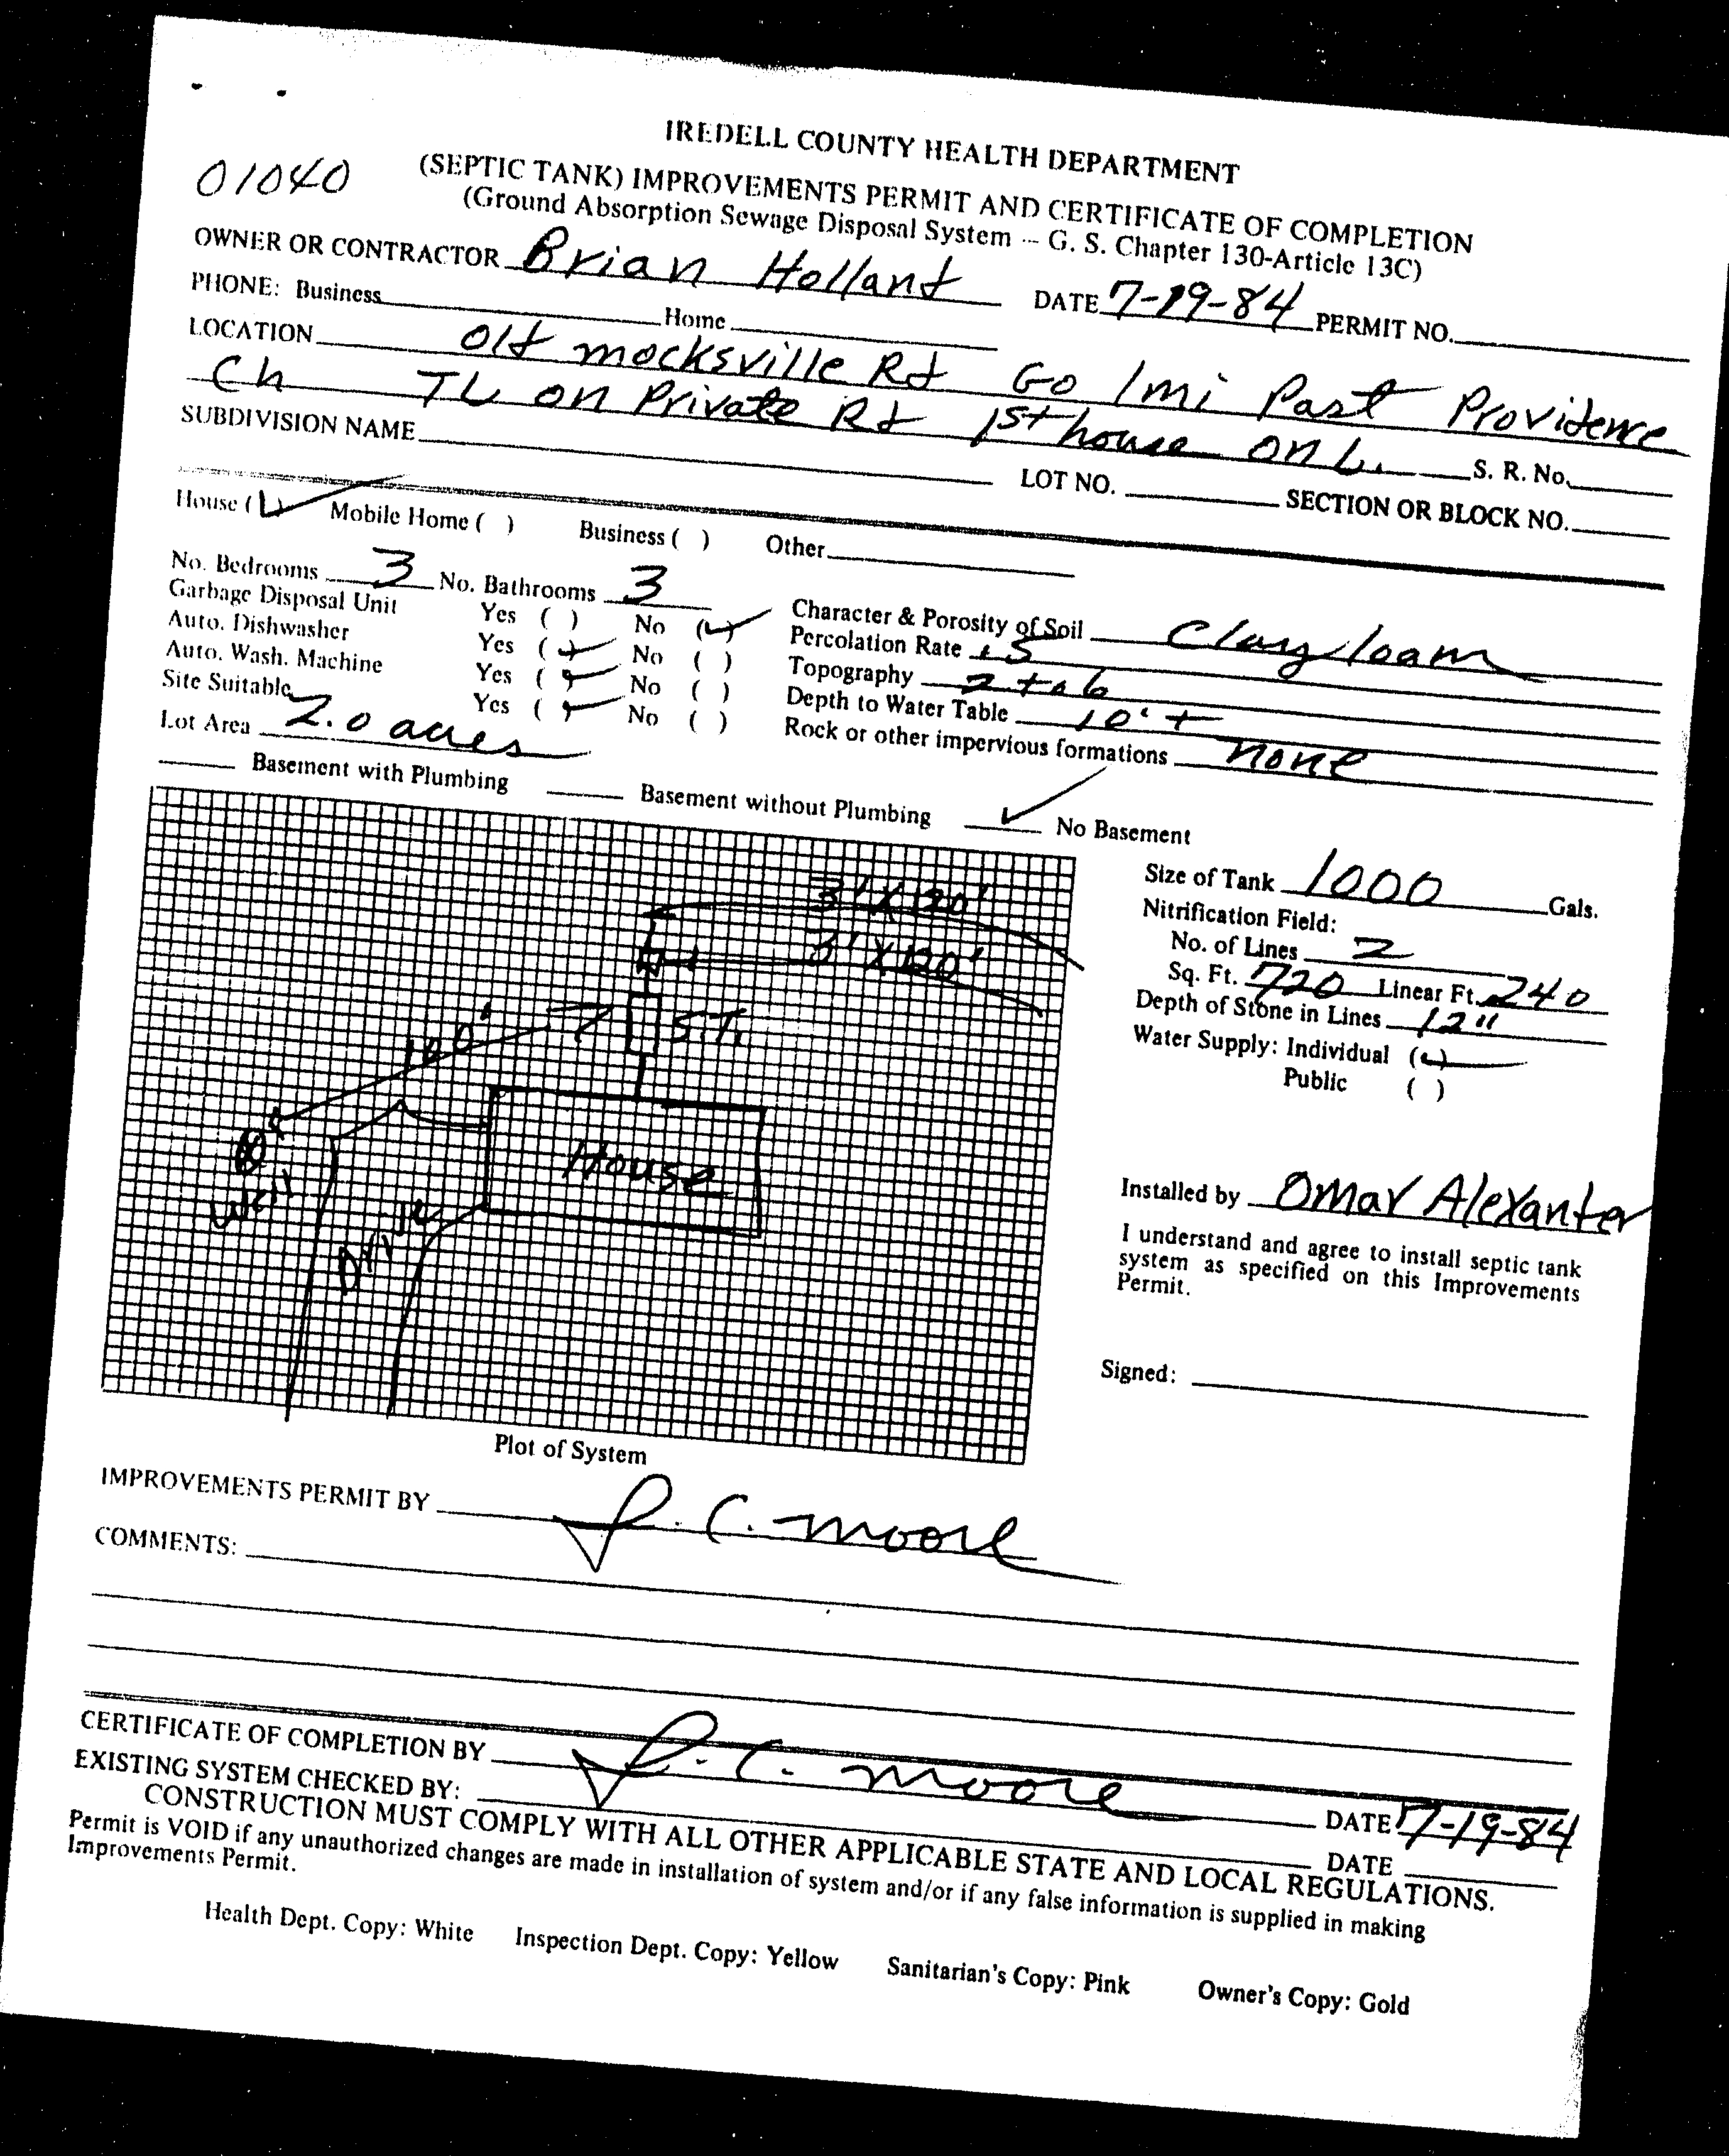 IREDELL COUNTY HEALTH DEPARTMENT
01040
(SEPTIC TANK) IMPROVEMENTS PERMIT AND CERTIFICATE OF COMPLETION
(Ground Absorption Sewage Disposal System -- G. S. Chapter 130-Article 13C)
OWNER OR CONTRACTOR Brian Holland DATE 7-19-84 PERMIT NO.
PHONE: Business Home
LOCATION Old mocksville Rd Go 1mi Past Providence
Ch TL on Private Rd 1st house on L. S. R. No.
SUBDIVISION NAME LOT NO. SECTION OR BLOCK NO.
House (✓) Mobile Home ( ) Business ( ) Other
No. Bedrooms 3 No. Bathrooms 3
Garbage Disposal Unit Yes ( ) No (✓)
Auto. Dishwasher Yes (✓) No ( )
Auto. Wash. Machine Yes (✓) No ( )
Site Suitable Yes (✓) No ( )
Lot Area 2.0 acres
Character & Porosity of Soil Clay loam
Percolation Rate .5
Topography 2 to 6
Depth to Water Table 10'+
Rock or other impervious formations none
Basement with Plumbing Basement without Plumbing ✓ No Basement
3' X 120'
3' X 120'
S.T.
100'
House
Well
Drive
Plot of System
Size of Tank 1000 Gals.
Nitrification Field:
No. of Lines 2
Sq. Ft. 720 Linear Ft. 240
Depth of Stone in Lines 12"
Water Supply: Individual (✓)
Public ( )
Installed by Omar Alexander
I understand and agree to install septic tank
system as specified on this Improvements
Permit.
Signed:
IMPROVEMENTS PERMIT BY J. C. Moore
COMMENTS:
CERTIFICATE OF COMPLETION BY J. C. Moore DATE 7-19-84
EXISTING SYSTEM CHECKED BY: DATE
CONSTRUCTION MUST COMPLY WITH ALL OTHER APPLICABLE STATE AND LOCAL REGULATIONS.
Permit is VOID if any unauthorized changes are made in installation of system and/or if any false information is supplied in making
Improvements Permit.
Health Dept. Copy: White Inspection Dept. Copy: Yellow Sanitarian's Copy: Pink Owner's Copy: Gold